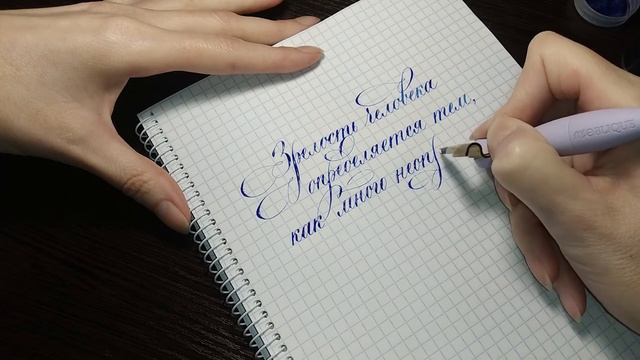 Зрелость человека
определяется тем,
как много неоп